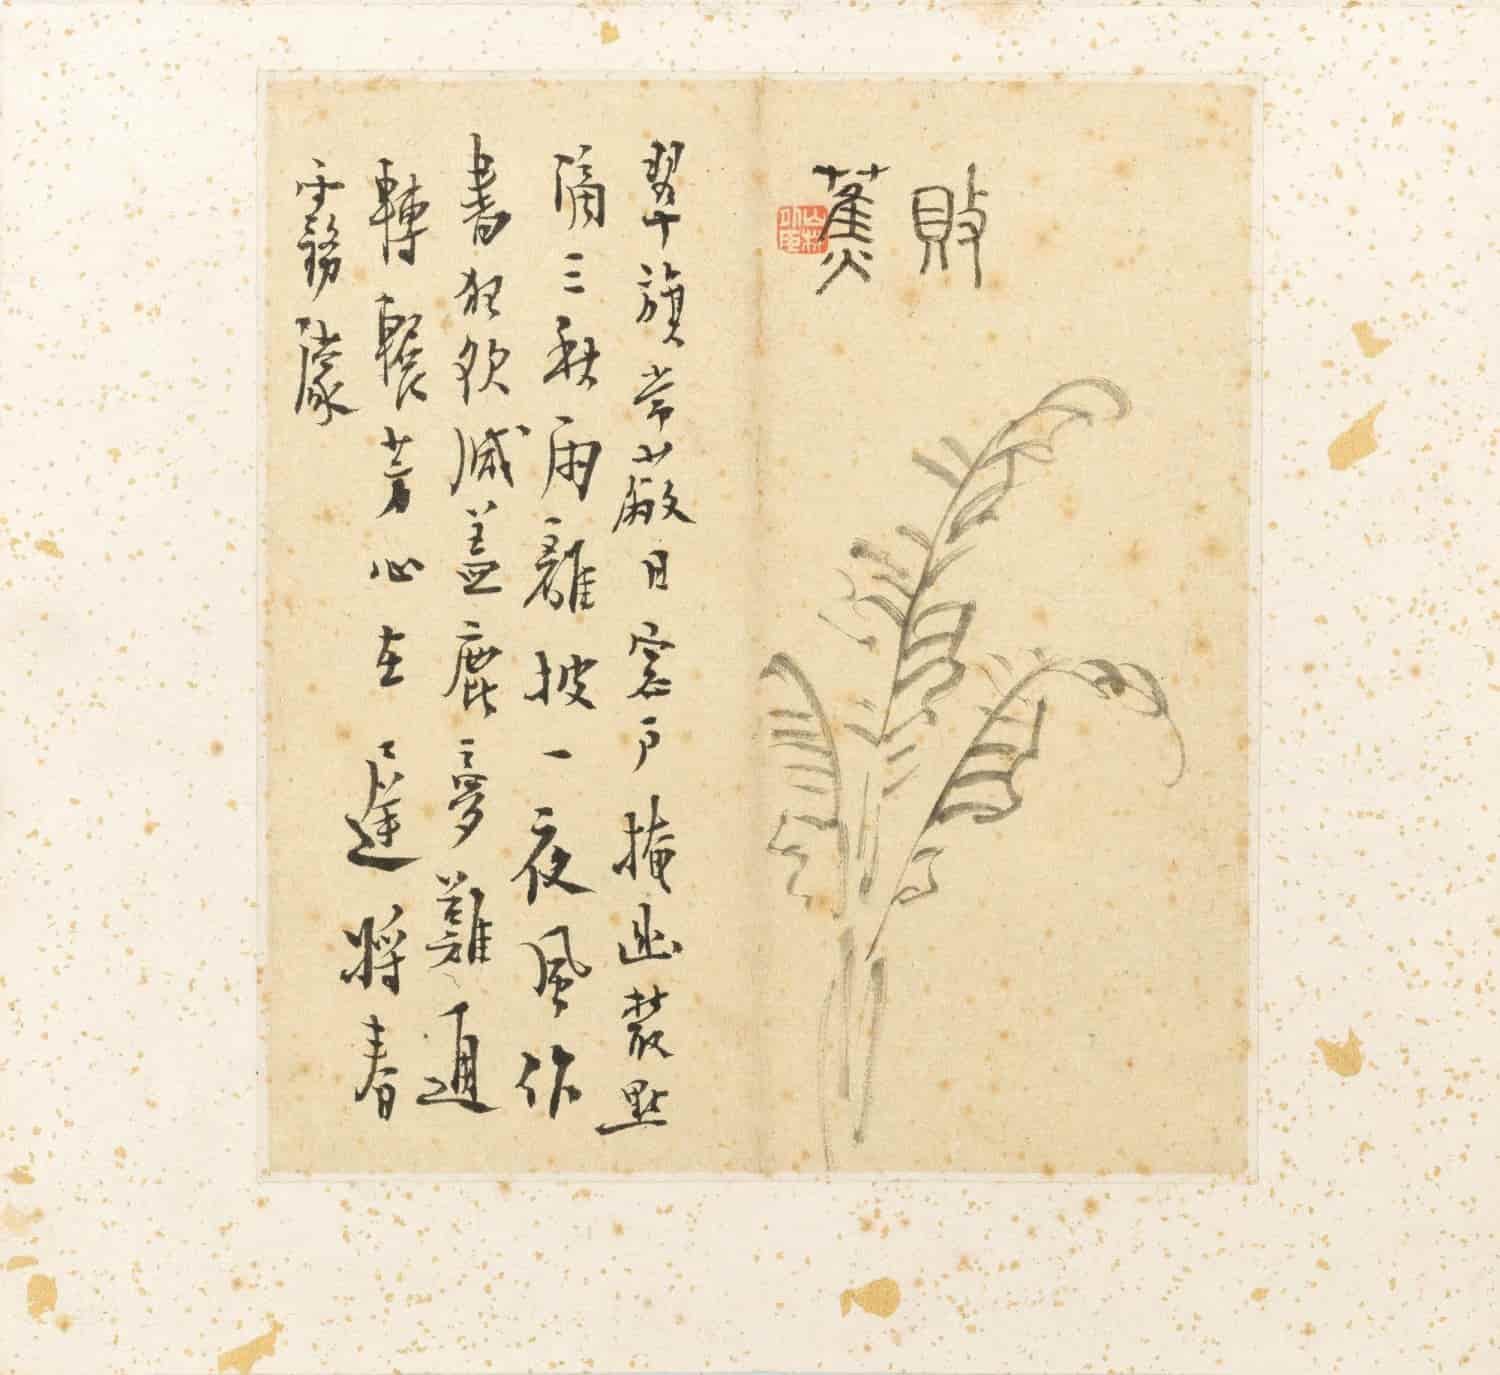 敗
蕉
山林外臣
翠旗常蔽日窗戶掩幽叢點
滴三秋雨離披一夜風作
書狂欲減蓋鹿夢難通
轉輾芳心在遲將春
霧濛